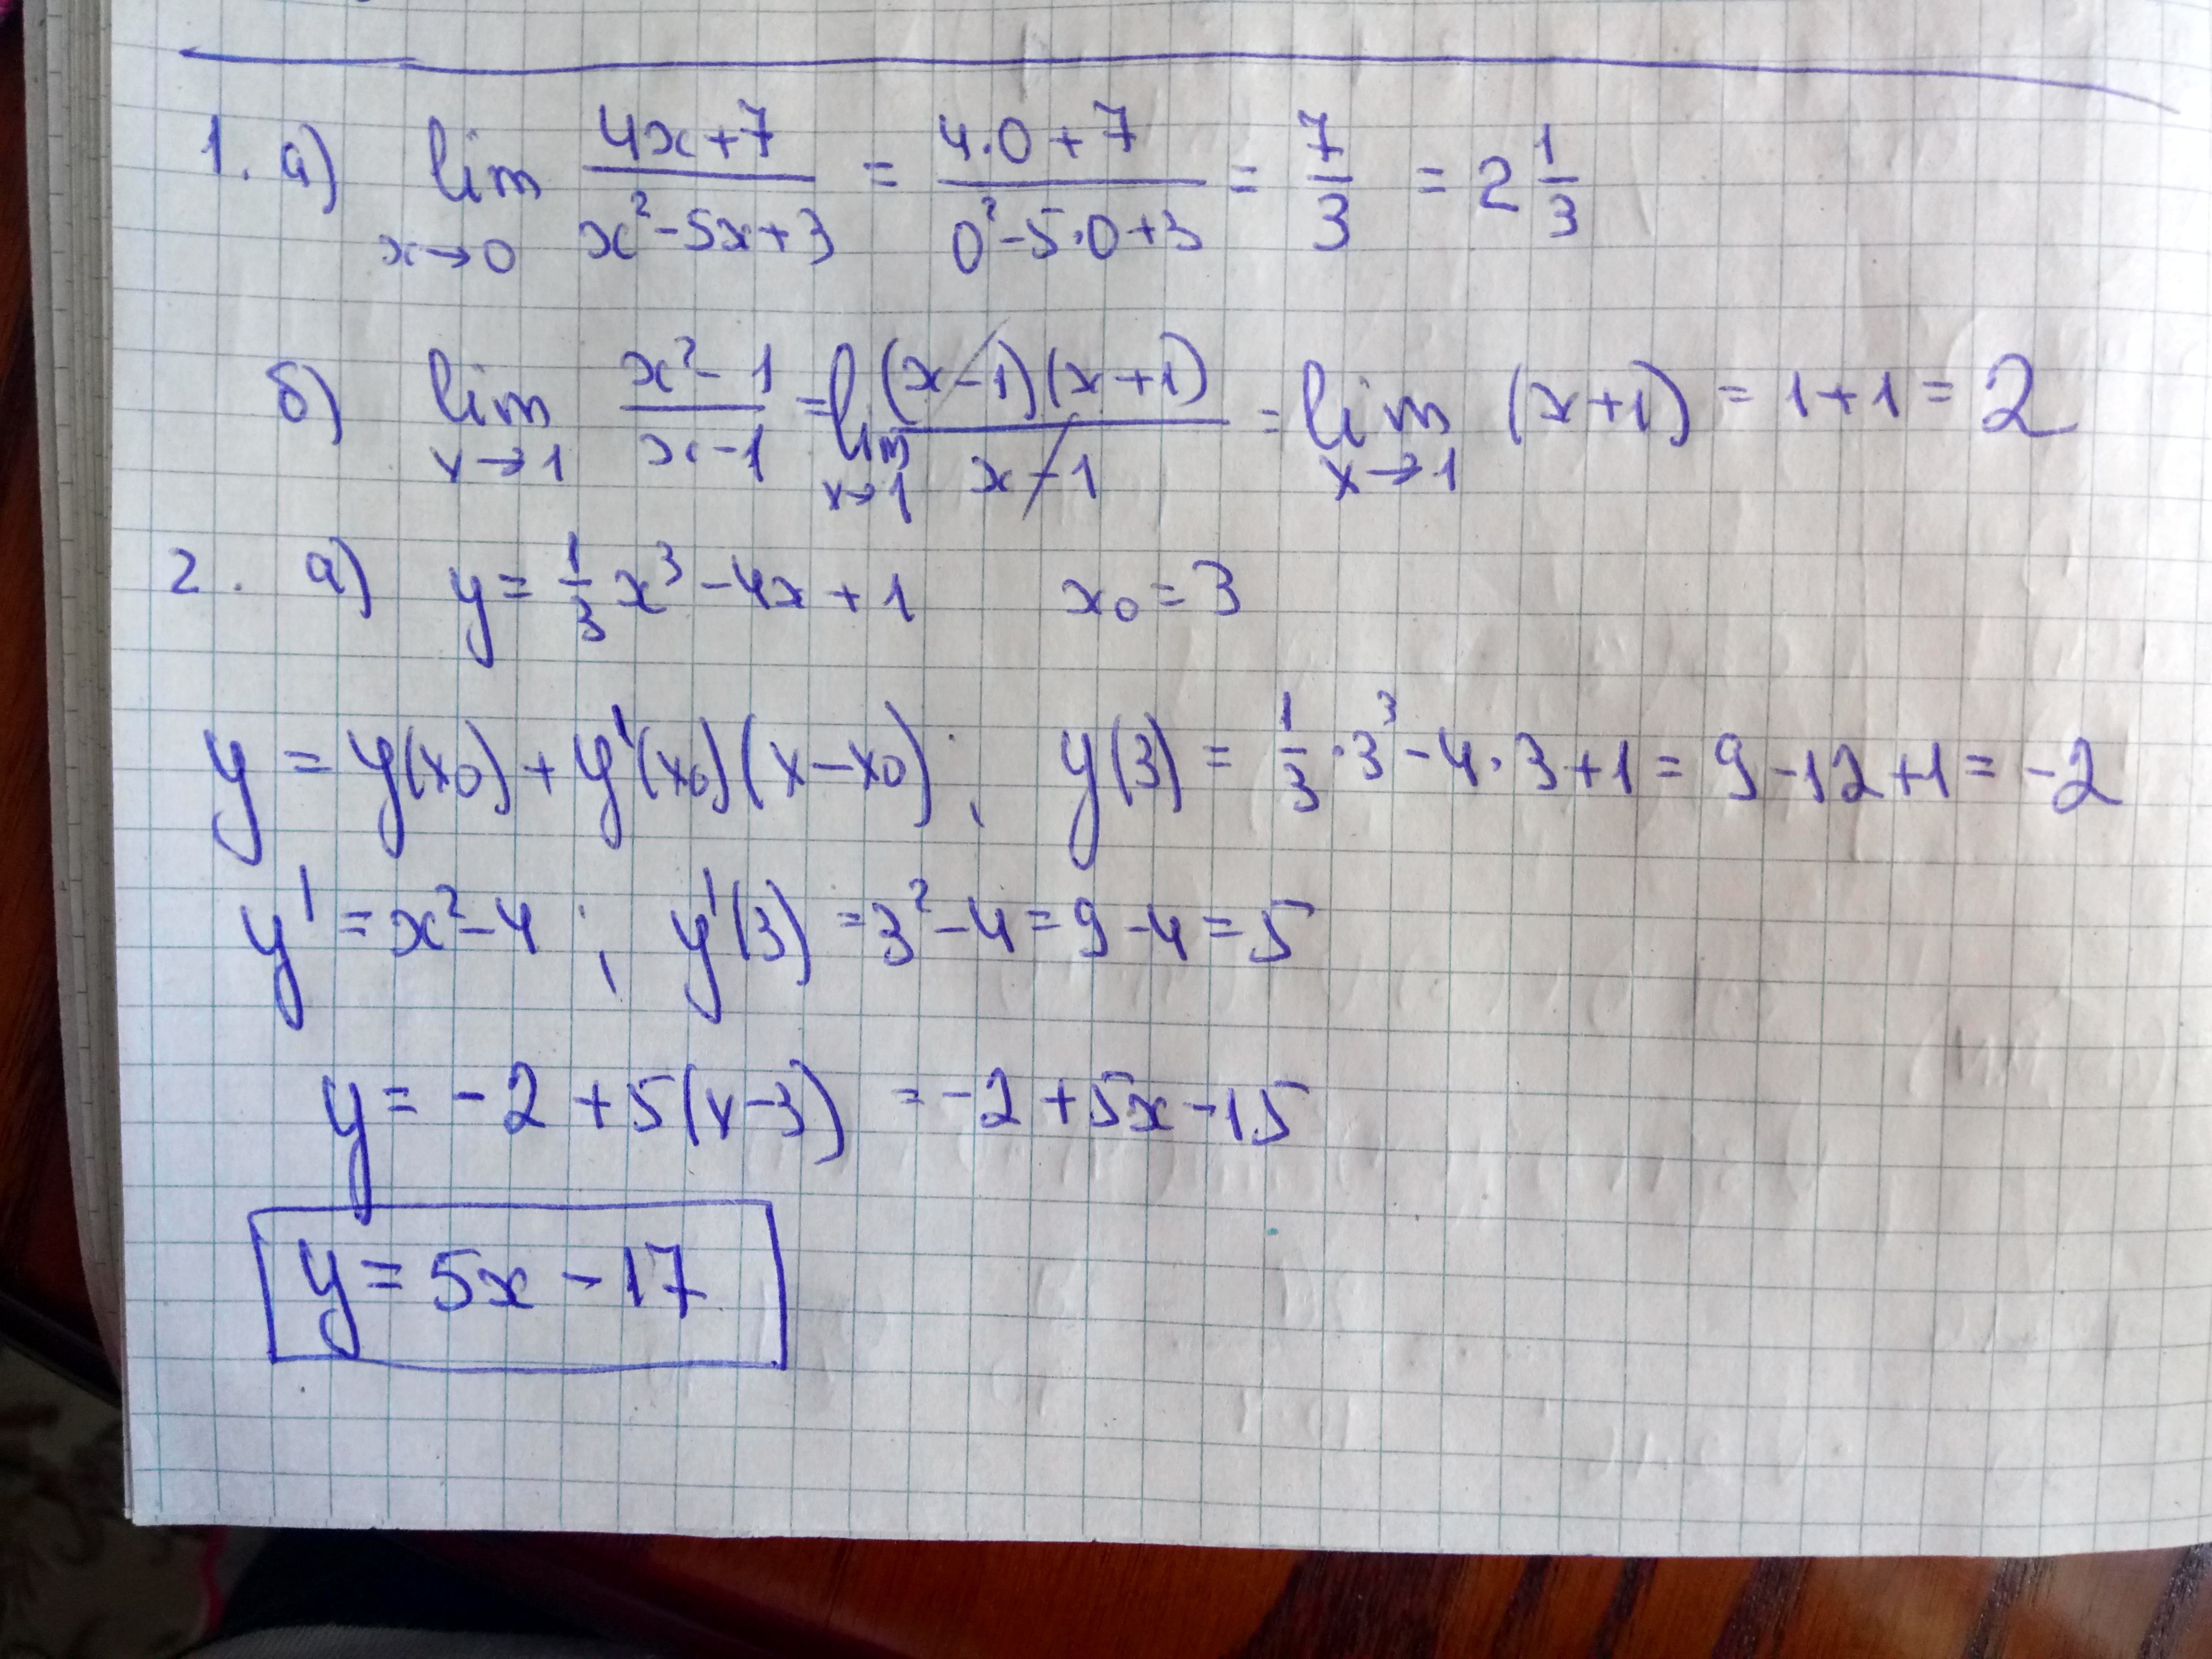 1. а) lim x→0 (4x+7)/(x²-5x+3) = (4·0+7)/(0²-5·0+3) = 7/3 = 2 1/3
б) lim x→1 (x²-1)/(x-1) = lim x→1 ((x-1)(x+1))/(x-1) = lim x→1 (x+1) = 1+1 = 2
2. а) y = 1/3 x³ - 4x + 1 x₀ = 3
y = y(x₀) + y'(x₀)(x-x₀); y(3) = 1/3 · 3³ - 4·3+1 = 9-12+1 = -2
y' = x²-4; y'(3) = 3²-4 = 9-4 = 5
y = -2 + 5(x-3) = -2 + 5x - 15
y = 5x - 17